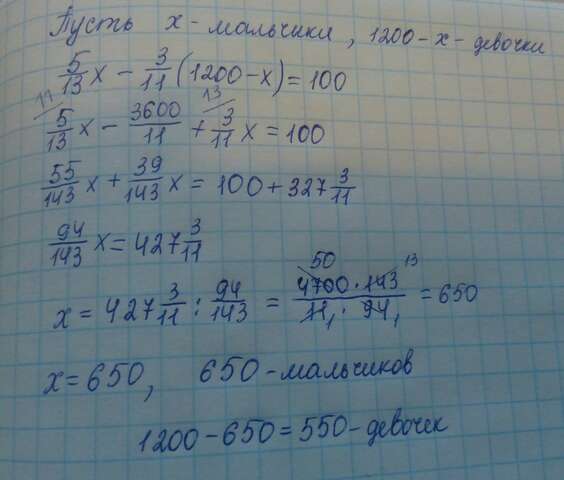 Пусть x - мальчики, 1200-x - девочки
5/13 x - 3/11 (1200-x) = 100
11 13
5/13 x - 3600/11 + 3/11 x = 100
55/143 x + 39/143 x = 100 + 327 3/11
94/143 x = 427 3/11
50 13
x = 427 3/11 : 94/143 = 4700·143/11₁·94₁ = 650
x = 650, 650 - мальчиков
1200-650=550-девочек